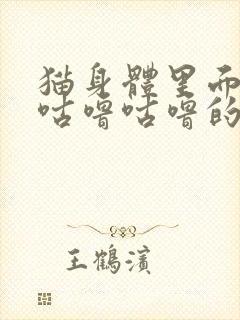 猫身體里面
咕嚕咕嚕的
王鶴濱